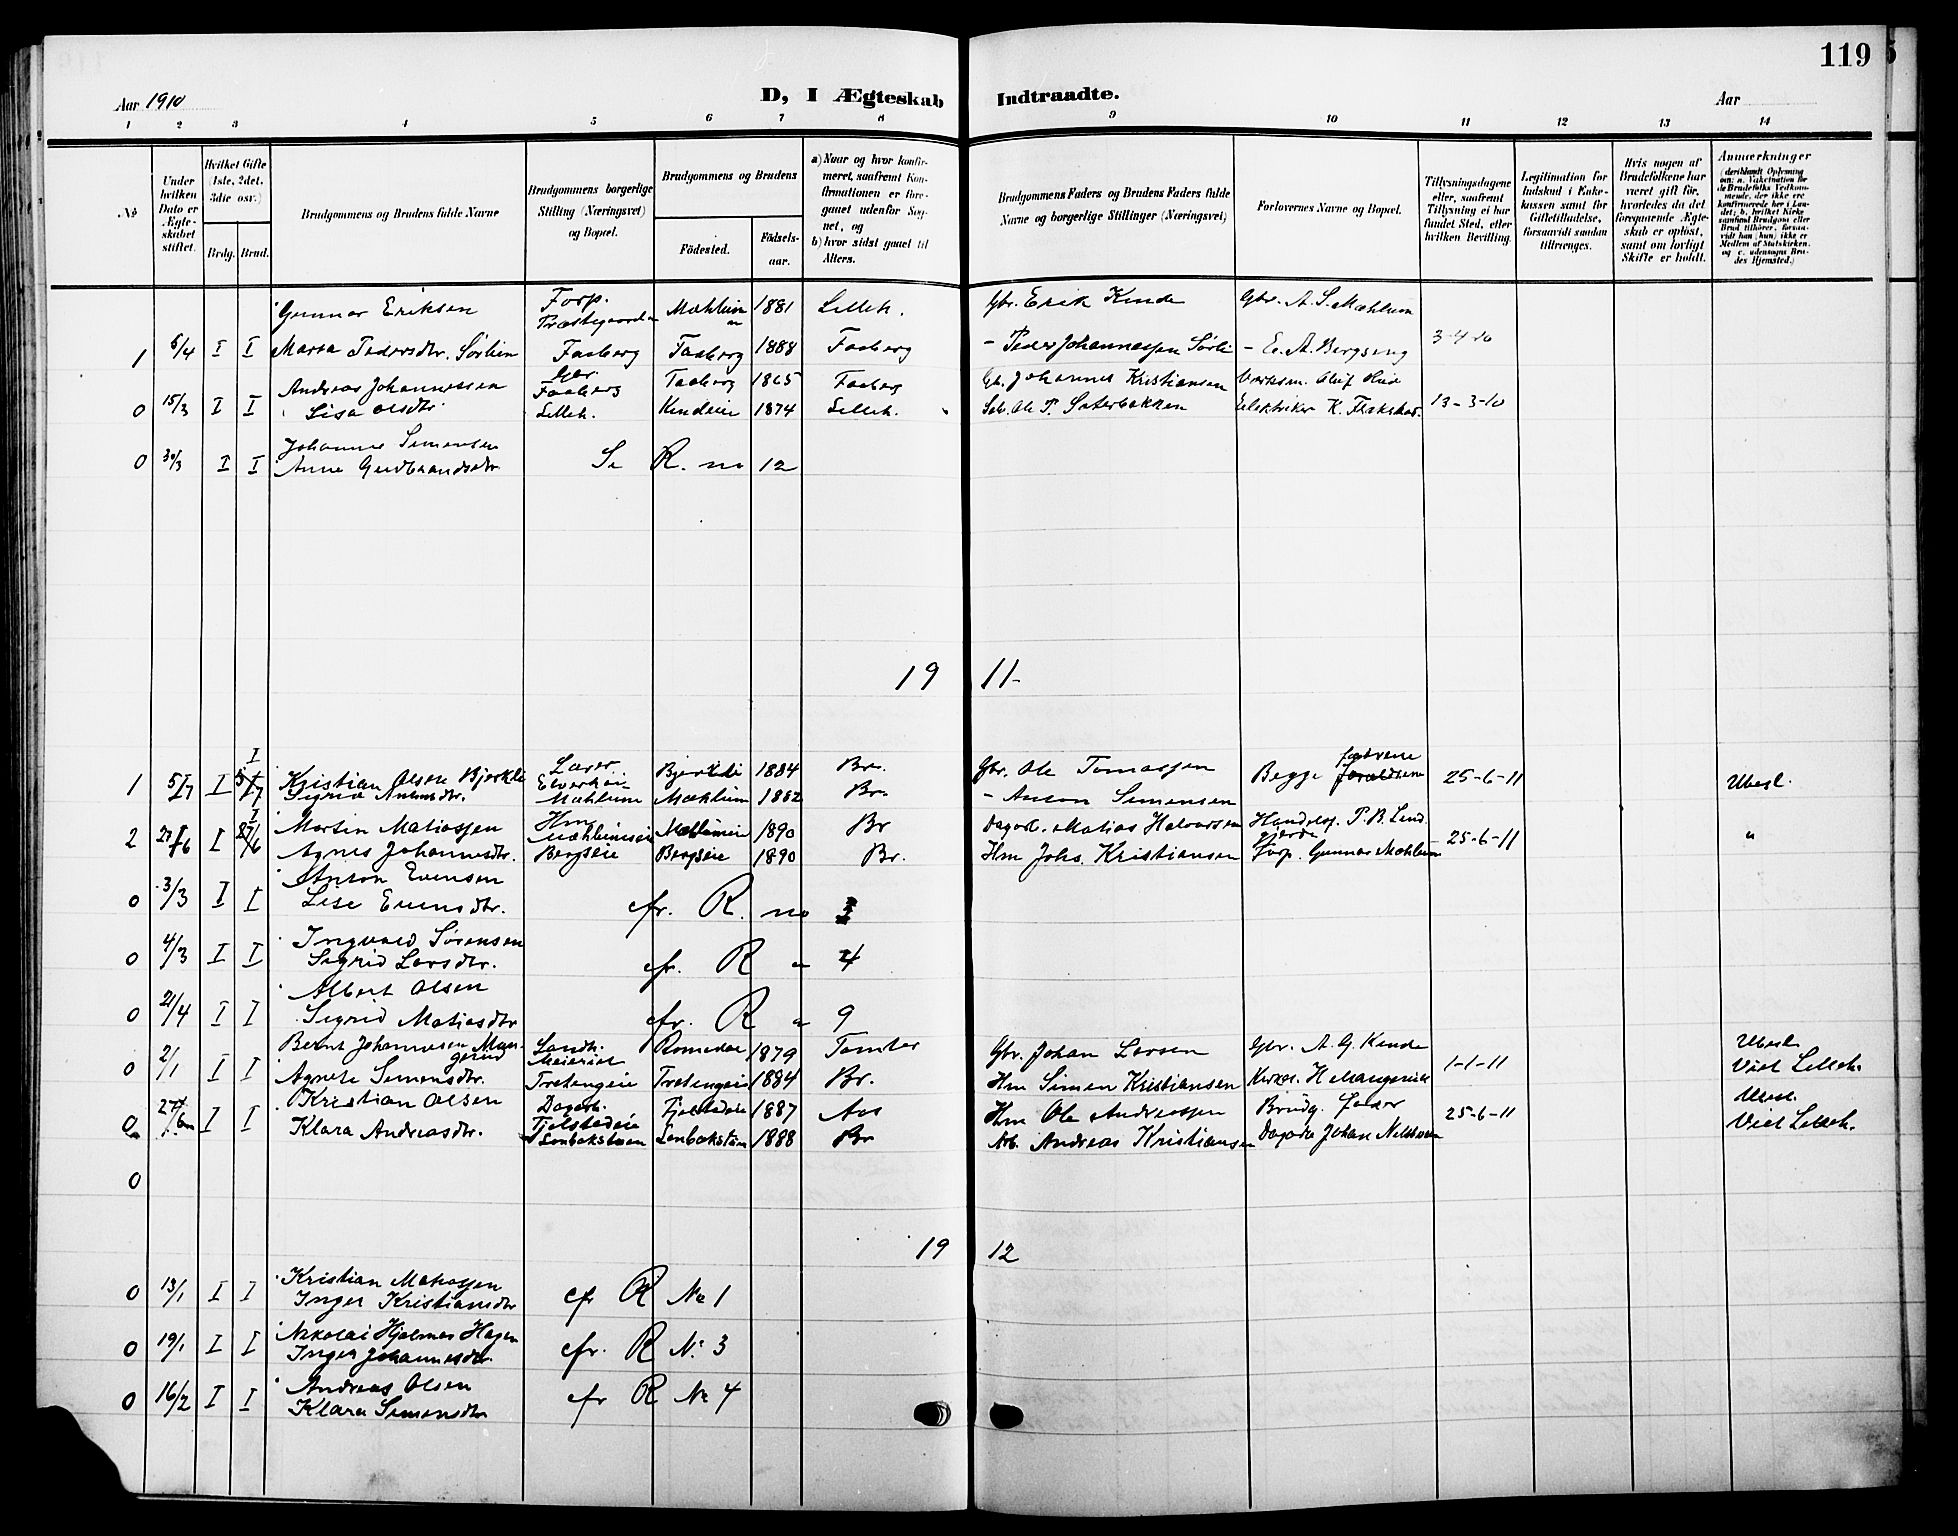 119
Aar 1910
D, I Ægteskab Indtraadte.
Aar
1 2 3 4 5 6 7 8 9 10 11 12 13 14
No
Under hvilken Dato er Ægteskabet stiftet.
Hvilket Gifte (1ste, 2det, 3die osv.)
Brdg. Brud.
Brudgommens og Brudens fulde Navne
Brudgommens borgerlige Stilling (Næringsvei) og Bopæl.
Brudgommens og Brudens
Fødested. Fødselsaar.
a) Naar og hvor konfirmeret, saafremt Konfirmationen er foregaaet udenfor Sognet, og
b) hvor sidst gaaet til Alters.
Brudgommens Faders og Brudens Faders fulde Navne og borgerlige Stillinger (Næringsvei)
Forlovernes Navne og Bopæl.
Tillysningsdagene eller, saafremt Tillysning ei har fundet Sted, efter hvilken Bevilling.
Legitimation for Indskud i Enkekassen samt for Giftetilladelse, forsaavidt saadan tiltrænges.
Hvis nogen af Brudefolkene har været gift før, hvorledes da det foregaaende Ægteskab er opløst, samt om lovligt Skifte er holdt.
Anmærkninger (deriblandt Oplysning om: a. Vakcination for de Brudefolks Vedkommende, der ikke ere konfirmerede her i Landet; b. hvilket Kirkesamfund Brudgom eller Brud tilhører, forsaavidt han (hun) ikke er Medlem af Statskirken. og c. udensogns Brudes Hjemsted.)
Gunnar Eriksen Forp. Mæhlum 1881 Lilleh. Gbr. Erik Kinde Gbr. A. S. Mæhlum
Præstegaarden
1 5/4 I I Marta Pedersdtr. Sørlien Faaberg Faaberg 1888 Faaberg - Peder Johannessen Sørli - E. A. Bergseng 3-4-10
Andreas Johannessen Gbr. Faaberg Faaberg 1865 Faaberg Gb. Johannes Kristiansen
0 15/3 I I Lisa Olsdtr. Lilleh. 1874 Lilleh. Ole P. Sæterbakken Elektriker K. 13-3-10
Johannes Simensen
0 30/3 I I Anne Gudbrandsdtr Se R. no 12
19 11-
1 5/7 I I Kristian Olsen Bjerkli 1884 Br. Gbr. Ole Tomassen Begge fædrene 25-6-11 Ubesl.
Sigrid Antonsdtr. Mæhlum Mæhlum 1882 Br. - Anton Simensen
2 27/6 I I Martin Matiassen Hm. 1890 Br Dagarb. Matias Halvorsen Handelsg. P. B. Lund 25-6-11 "
Agnes Johannesdtr. Bergseie Bergseie 1890 Br. Hm Johs. Kristiansen Forp. Gunnar Mæhlum
Anton Evensen
0 3/3 I I Lise Evensdtr. cfr. R. no 3
Ingvald Sørensen
0 4/3 I I Sigrid Larsdtr. cfr. R " 4
Albert Olsen
0 21/4 I I Sigrid Matiasdtr cfr. R " 9
Bernt Johannesen Mangerud Landh. Romedal 1879 Tomter Gbr. Johan Larsen Gbr. A. G. Kinde Ubesl.
0 2/1 I I Agnete Simensdtr. Tretengeie Tretengeie 1884 Br. Hm Simen Kristiansen 1-1-11 Viet Lilleh.
Kristian Olsen Dagarb. 1887 Aas Hm Ole Andreassen Brudg. fader Ubesl.
0 27/6 I I Klara Andreasdtr. 1888 Br Arb. Andreas Kristiansen 25-6-11 Viet Lilleh.
0
19 12
Kristian Matiassen
0 13/1 I I Inger Kristiansdtr cfr R No 1
Nikolai Hjalmar Hagen
0 19/1 I I Inger Johannesdtr. cfr. R No 3
Andreas Olsen
0 16/2 I I Klara Simensdtr cfr R No 4